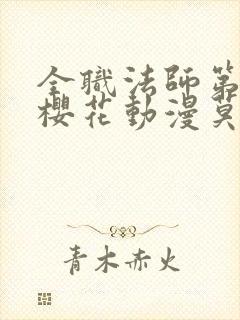 全職法師第
櫻花動漫莫
青木赤火